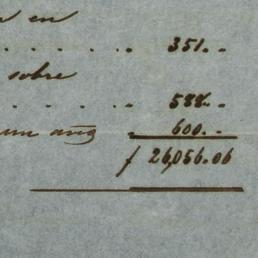 en
. . . . . . 351. .
sobre
. . . . . 588. .
un año 600. .
ƒ 26,056.06